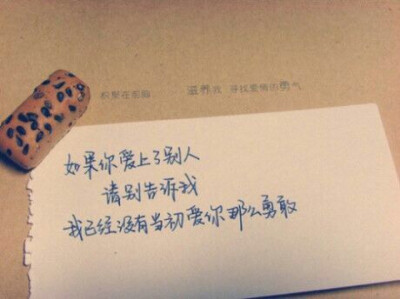 积聚在胸腔, 滋养我 寻找爱情的勇气
如果你爱上了别人
请别告诉我
我已经没有当初爱你那么勇敢